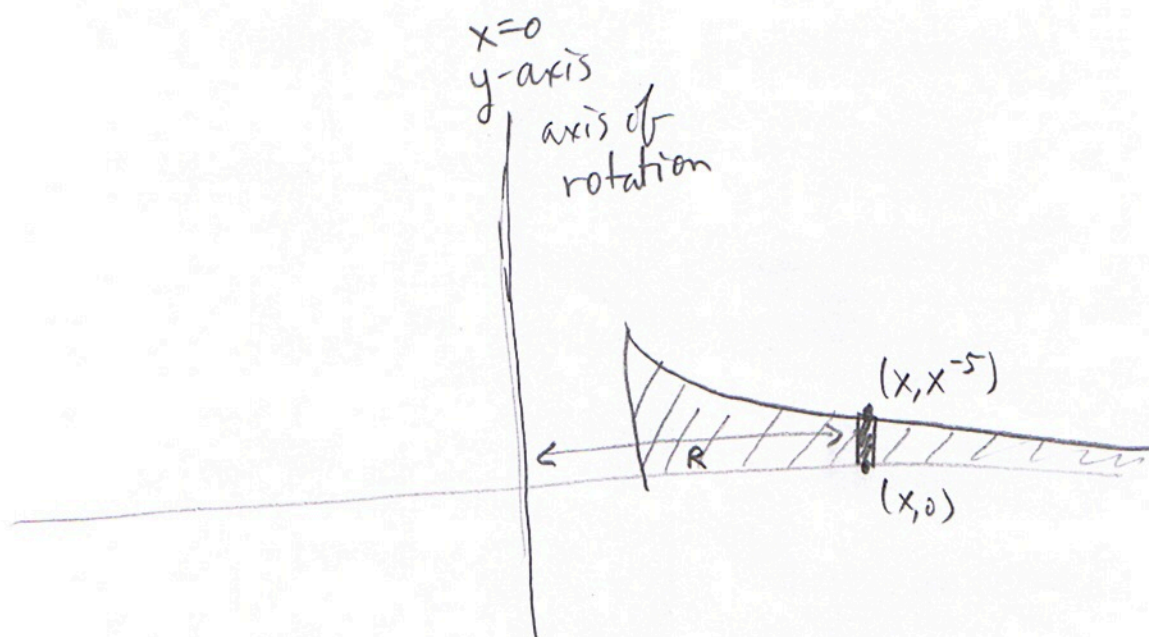 x=0
y-axis
axis of
rotation
(x,x⁻⁵)
R
(x,0)